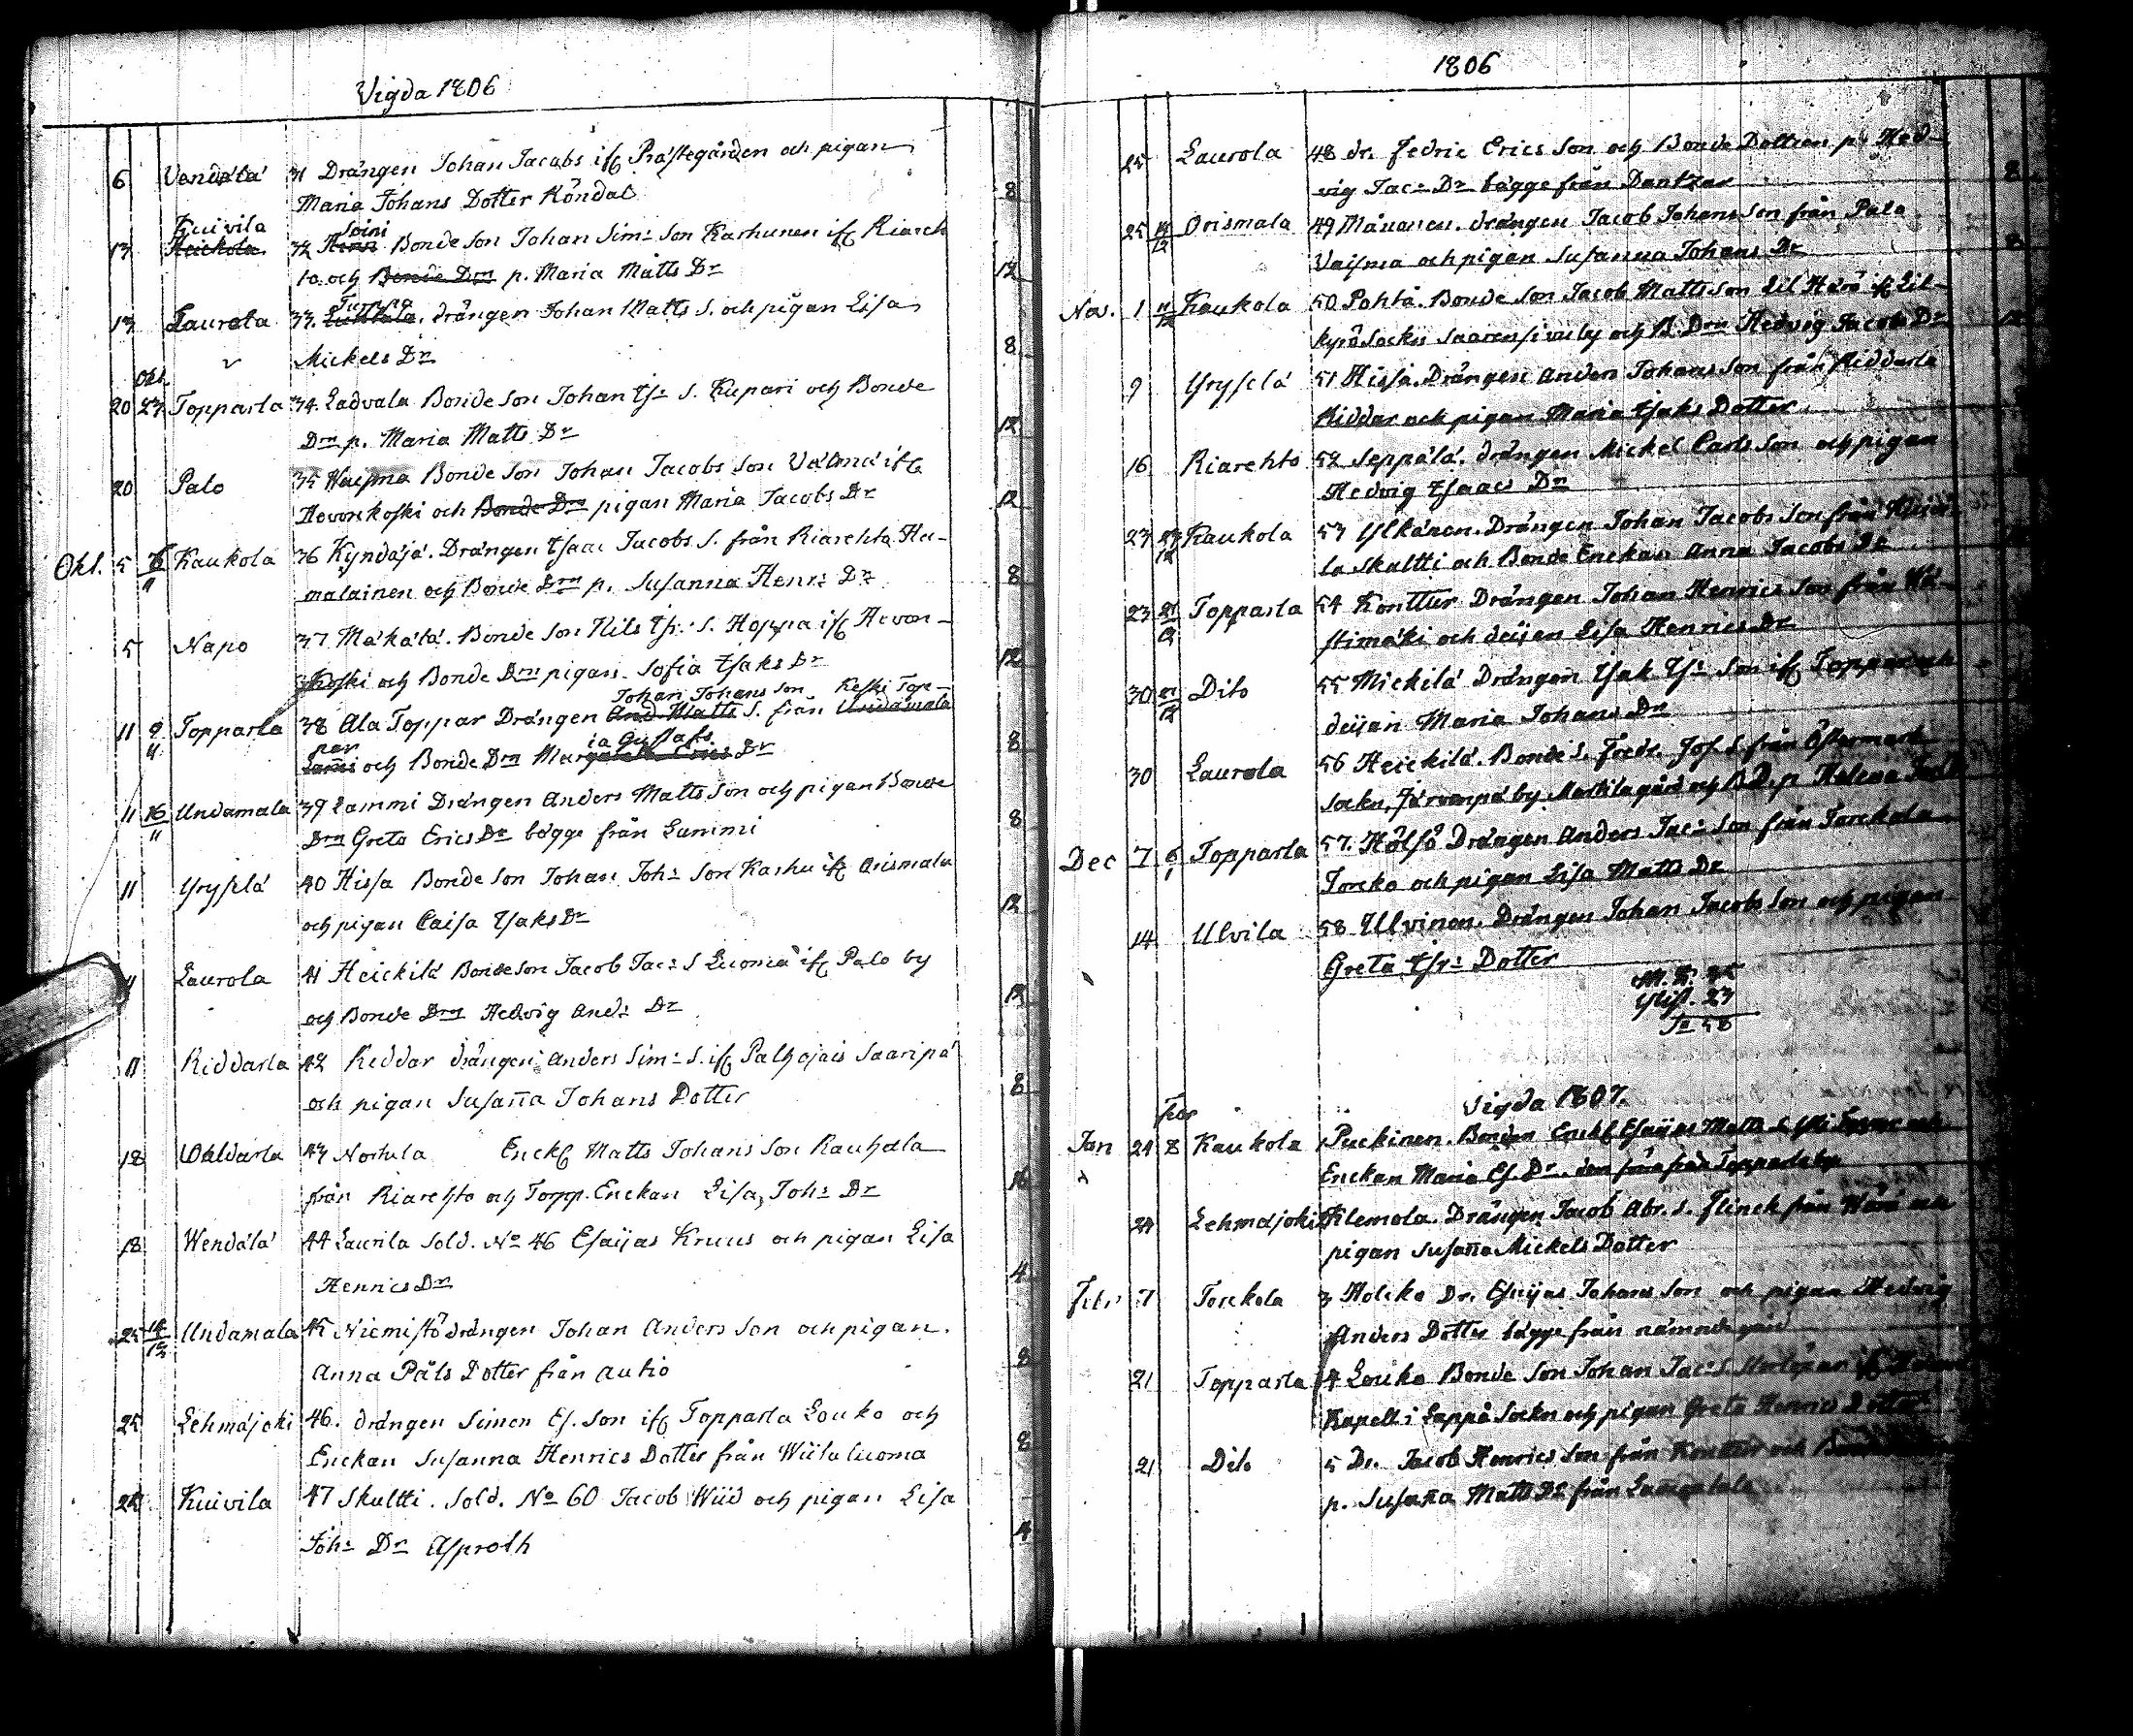 Vigda 1806
6 Vendälä 31 Drängen Johan Jacobs if Prästegården och pigan
Maria Johans Dotter Köndal 8
Kuivila Soini
13 Heickola 32 Bonde Son Johan Sim: Son Karhunen if Riareh
to och Bonde Drn p. Maria Matts Dr 12
13 Laurola 33. drängen Johan Matts S. och pigan Lisa
Mickels Dr 8
Okt.
20 23 Topparla 34. Ladvala Bonde Son Johan Is: S. Kupari och Bonde
Drn p. Maria Matts Dr 12
20 Palo 35 Bonde Son Johan Jacobs Son Välmä if
Hevonkoski och Bonde Drn pigan Maria Jacobs Dr 12
Okt. 5 Kaukola 36 Kyndäjä. Drängen Isaac Jacobs S. från Riarehto Hu-
malainen och Bonde Drn p. Susanna Henr: Dr 8
5 Napo 37 Mäkälä. Bonde Son Nils Is: S. Hoppa if Hevon-
koski och Bonde Drn pigan Sofia Isaks Dr 12
Johan Johans Son Keski Top-
11 9/11 Topparla 38 Ala Toppar Drängen And. Matts S. från Undamala
par ia Gustafs
Lammi och Bonde Drn Margareta Erics Dr 8
11 16/11 Undamala 39 Lammi Drängen Anders Matts Son och pigan Bonde
Drn Greta Erics Dr bägge från Lammi 8
11 Yrysselä 40 Hissa Bonde Son Johan Joh: Son Karhu if Orismala
och pigan Caisa Isaks Dr 12
11 Laurola 41 Heickilä Bonde Son Jacob Jac: S Luoma if Palo by
och Bonde Drn Hedvig And: Dr 12
11 Riddarla 42 Riddar drängen Anders Sim: S. if Palhojais Saaripä
och pigan Susanna Johans Dotter 8
18 Waldarla 43 Enckl Matts Johans Son Rauhala
från Riarehto och Topp. Enckan Lisa Joh: Dr 16
18 Wendälä 44 Laurila Sold. No 46 Esaijas Kruus och pigan Lisa
Henrics Dr 4
25 14/12 Undamala 45 Niemistö drängen Johan Anders Son och pigan
Anna Påls Dotter från Autio 8
25 Lehmäjoki 46. drängen Simon Es. Son if Topparla Louko och
Enckan Susanna Henrics Dotter från Wiitaluoma 8
25 Kuivila 47 Skultti. Sold. No 60 Jacob Wiid och pigan Lisa
Joh: Dr Asproth 4
1806
25 Laurola 48 dr. Fedric Erics Son och Bonde Dottren p. Hed-
vig Jac: Dr bägge från Dantzar 8
25 Orismala 49 Månonen. drängen Jacob Johans Son från Palo
Vaisma och pigan Susanna Johans Dr 8
Nov. 1 11/12 Kaukola 50 Pohtå. Bonde Son Jacob Matts Son Lil Härö if Lil-
kyrö Sockn Saarensivu by och B. Drn Hedvig Jacobs Dr 12
9 Yrysselä 51 Hissa. Drängen Anders Johans Son från Riddarla
Riddar och pigan Maria Isaks Dotter
16 Riarehto 52 Seppälä. drängen Mickel Carls Son och pigan
Hedvig Isaacs Dr
23 Kaukola 53 Ylkänen. Drängen Johan Jacobs Son från
la Skultti och Bonde Enckan Anna Jacobs Dr
23 Topparla 54 Konttur Drängen Johan Henrics Son från Hä-
stimäki och deijan Lisa Henrics Dr
30 Dito 55 Mickilä Drängen Isak Is: Son if Toppar och
deijan Maria Johans Dr
30 Laurola 56 Heickilä. Bonde S. Fredr. Jos. S. från Östermark
Sockn, Järvenpä by Mattila gård och B.D. p Helena
Dec 7 6/1 Topparla 57. Hölsö Drängen Anders Jac: Son från Torckola
Torcko och pigan Lisa Matts Dr
14 Ulvila 58 Ulvinen. Drängen Johan Jacobs Son och pigan
Greta Isr: Dotter
Ylist. 23
Sa 58
Vigda 1807.
Febr
Jan 24 8 Kaukola Puckinen. Bonden Enckl Esaijas Matts S.
Enckan Maria Es. Dr. från Topparla by
24 Lehmäjoki 2 Klemola. Drängen Jacob Abr. S. Flinck från Härö och
pigan Susanna Mickels Dotter
Febr 7 Torckola 3 Holcko Dr. Esaijas Johans Son och pigan Hedvig
Anders Dotter bägge från nämnde gård
21 Topparla 4 Louko Bonde Son Johan Jac: S. if
Kapell i Lappå Sockn och pigan Greta Henrics Dotter
21 Dito 5 Dr. Jacob Henrics Son från Konttur och Bonde
p. Susanna Matts Dr från